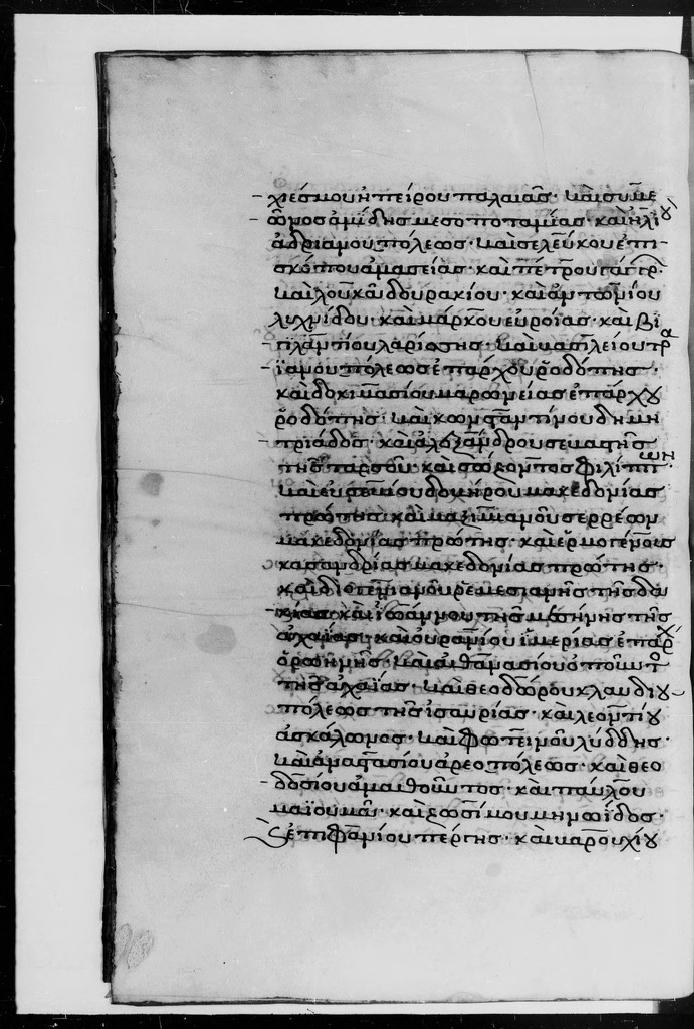 χιέσμου ἠπείρου παλαιᾶς· καὶ συμε
ῶνος ἀμίδης μεσοποταμίας· καὶ ἠλιου
ἀδριανουπόλεως· καὶ σελεύκου ἐπι
σκόπου ἀμασείας· καὶ πέτρου
καὶ λουκᾶ δουρακίου· καὶ ἀντωνίου
λυχνίδου· καὶ μάρκου εὐροίας· καὶ βι
λαντίου λαρίσσης· καὶ βασιλείου τρα
ϊανουπόλεως ἐπάρχου ῥοδόπης·
καὶ δοκιμασίου μαρωνείας ἐπάρχου
ῥοδόπης· καὶ κωνσταντίνου δημη
τριάδος· καὶ ἀλεξάνδρου σεβαστῆς
τῆς ταρσοῦ· καὶ σώζοντος φιλίππων
καὶ εὐσεβίου δοβήρου μακεδονίας
πρώτης· καὶ μαξιμιανοῦ σερρέων
μακεδονίας πρώτης· καὶ ἑρμογένους
κασανδρίας μακεδονίας πρώτης·
καὶ διογενιανοῦ ῥεμεσιανῆς τῆς δα
κίας· καὶ ϊωάννου τῆς μεσήνης τῆς
ἀχαΐας· καὶ οὐρανίου ἱμερίας ἐπαρχ
ὀροηνῆς· καὶ ἀθανασίου ὀποῦντο
τῆς ἀχαΐας· καὶ θεοδώρου κλαυδιου
πόλεως τῆς ἰσαυρίας· καὶ λεοντίου
ἀσκάλωνος· καὶ φωτεινοῦ λύδδης·
καὶ ἀναστασίου ἀρεοπόλεως· καὶ θεο
δοσίου ἀμαθοῦντος· καὶ παύλου
μαϊουμᾶ· καὶ ζωσίμου μηνωΐδος·
ἐπιφανίου πέργης· καὶ βαρουχίου